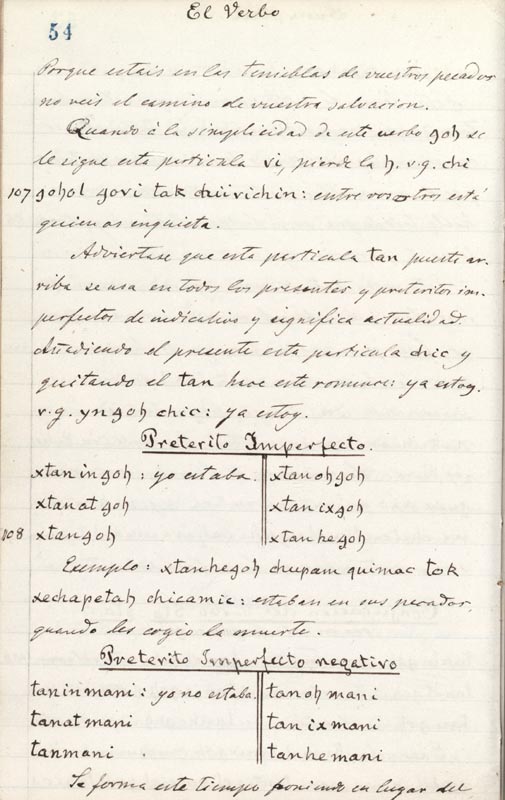 El Verbo
54
Porque estais en las tinieblas de vuestros pecados
no veis el camino de vuestra salvacion.
Quando à la simplicidad de este verbo goh se
le sigue esta particula vi, pierde la h. v.g. chi
107 gohol govi tak chiivichin: entre vosotros está
quien os inquieta.
Adviertase que esta particula tan puesta ar-
riba se usa en todos los presentes y preteritos im-
perfectos de indicativo y significa actualidad.
Añadiendo el presente esta particula chic y
quitando el tan hace este romance: ya estoy.
v.g. yn goh chic: ya estoy.
Preterito Imperfecto.
xtan in goh: yo estaba. xtan oh goh
xtan at goh xtan ix goh
108 xtan goh xtan he goh
Exemplo: xtanhegoh chupam quimac tok
xechapetah chicamic: estaban en sus pecados,
quando les cogio la muerte.
Preterito Imperfecto negativo
tan in mani: yo no estaba. tan oh mani
tan at mani tan ix mani
tan mani tan he mani
Se forma este tiempo poniendo en lugar del